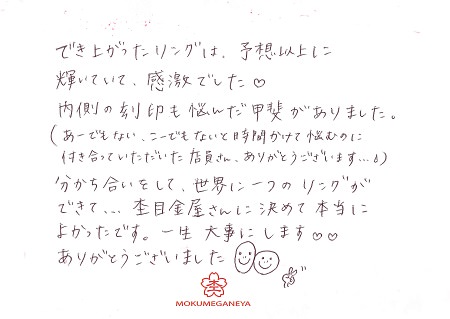 でき上がったリングは、予想以上に
輝いていて、感激でした♡
内側の刻印も悩んだ甲斐がありました。
(あーでもない、こーでもないと時間かけて悩むのに
付き合っていただいた店員さん、ありがとうございます…。)
分かち合いをして、世界に一つのリングが
できて… 杢目金屋さんに決めて本当に
よかったです。一生大事にします♡♡
ありがとうございました
杢
MOKUMEGANEYA